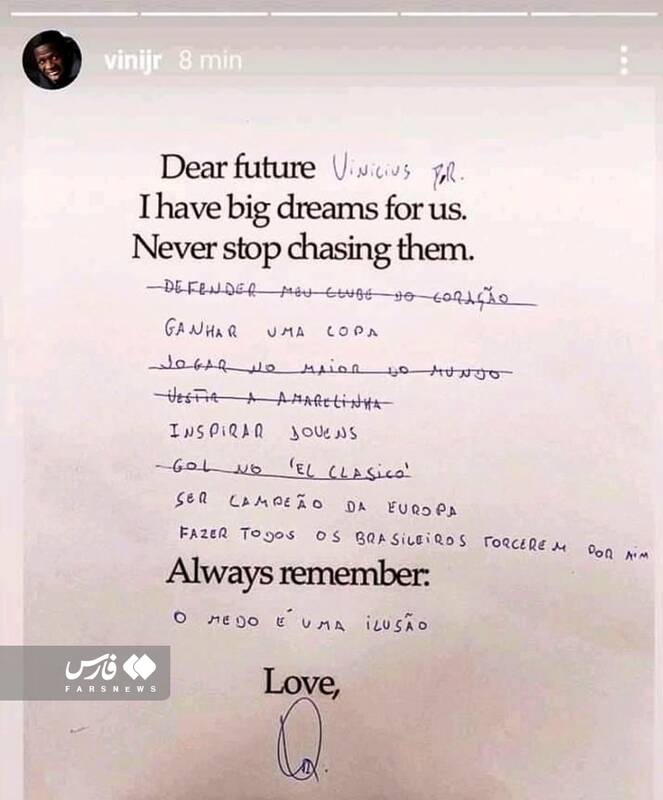 vinijr 8 min
Dear future Vinicius JR.
I have big dreams for us.
Never stop chasing them.
DEFENDER MEU CLUBE DO CORAÇÃO
GANHAR UMA COPA
JOGAR NO MAIOR DO MUNDO
VESTIR A AMARELINHA
INSPIRAR JOVENS
GOL NO 'EL CLASICO'
SER CAMPEÃO DA EUROPA
FAZER TODOS OS BRASILEIROS TORCEREM POR MIM
Always remember:
O MEDO É UMA ILUSÃO
فارس
FARSNEWS
Love,